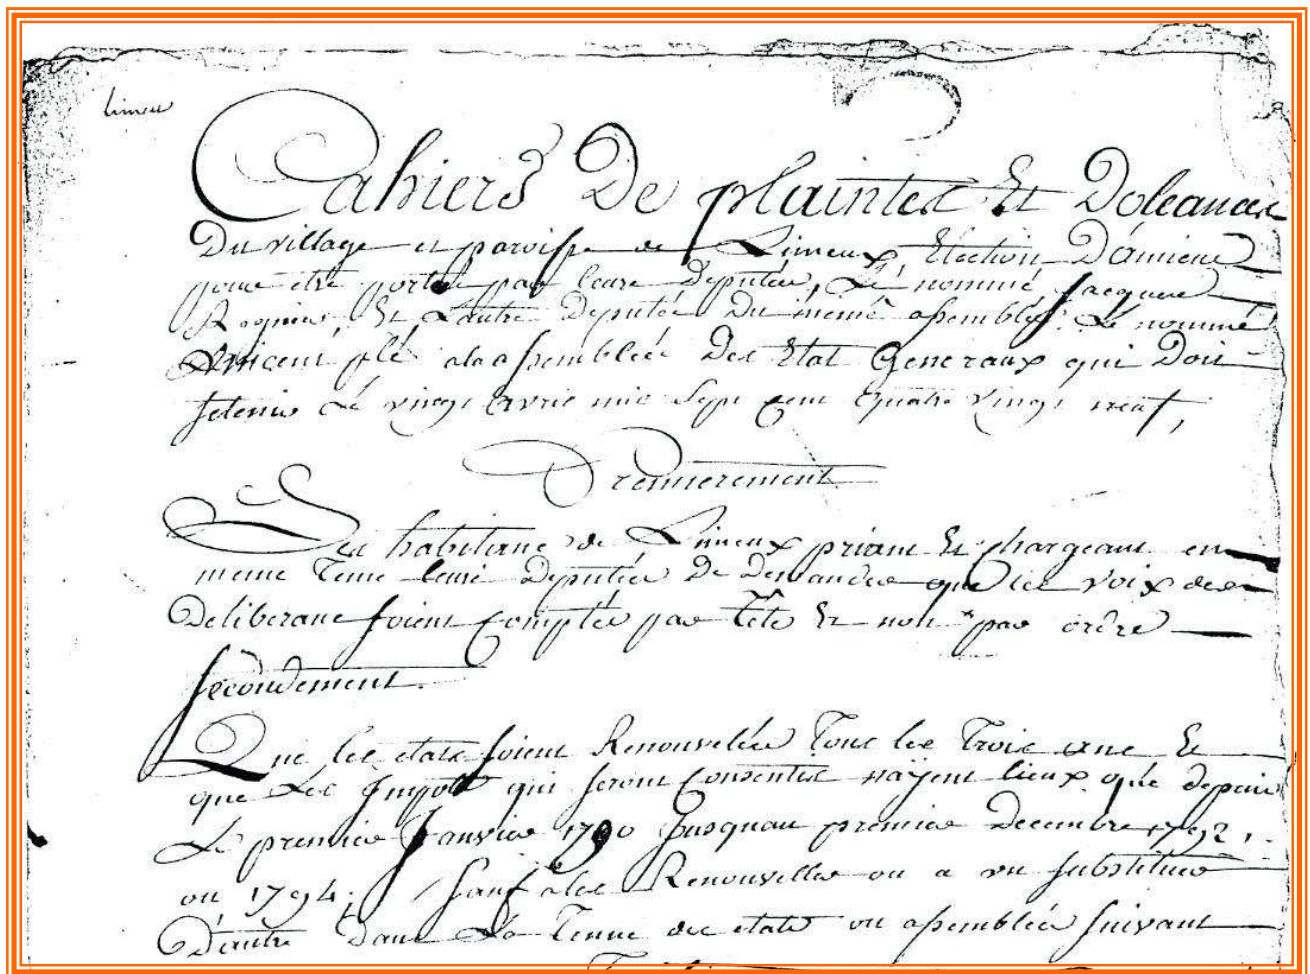 limeu
Cahiers De plaintes Et Doleances
Du village et paroisse de Limeux Election D'amiens
pour etre porté par leurs Deputés, Le nommé Jacques
Et L'autre Deputée Du méme assemblée Le nommé
vincent plé alassemblée Des Etat Generaux qui Doit
setenir Le vingt avril mil sept cent quatre vingt neuf,
Premierement
Les habitans de Limeux priant Et chargeant en
meme tems leurs Deputées De Demander que les voix des
Deliberans soient comptées par tête Et non par ordre
secondement.
Que les etats soient Renouvelées Tous les Trois ans Et
que Les Impots qui seront consentis nayent lieux que depuis
Le premier Janvier 1790 Jusquau premier Decembre 1792,
ou 1794; sauf ales Renouveller ou a en substituer
D'autre Dans La Tenue des etats ou assemblées suivant